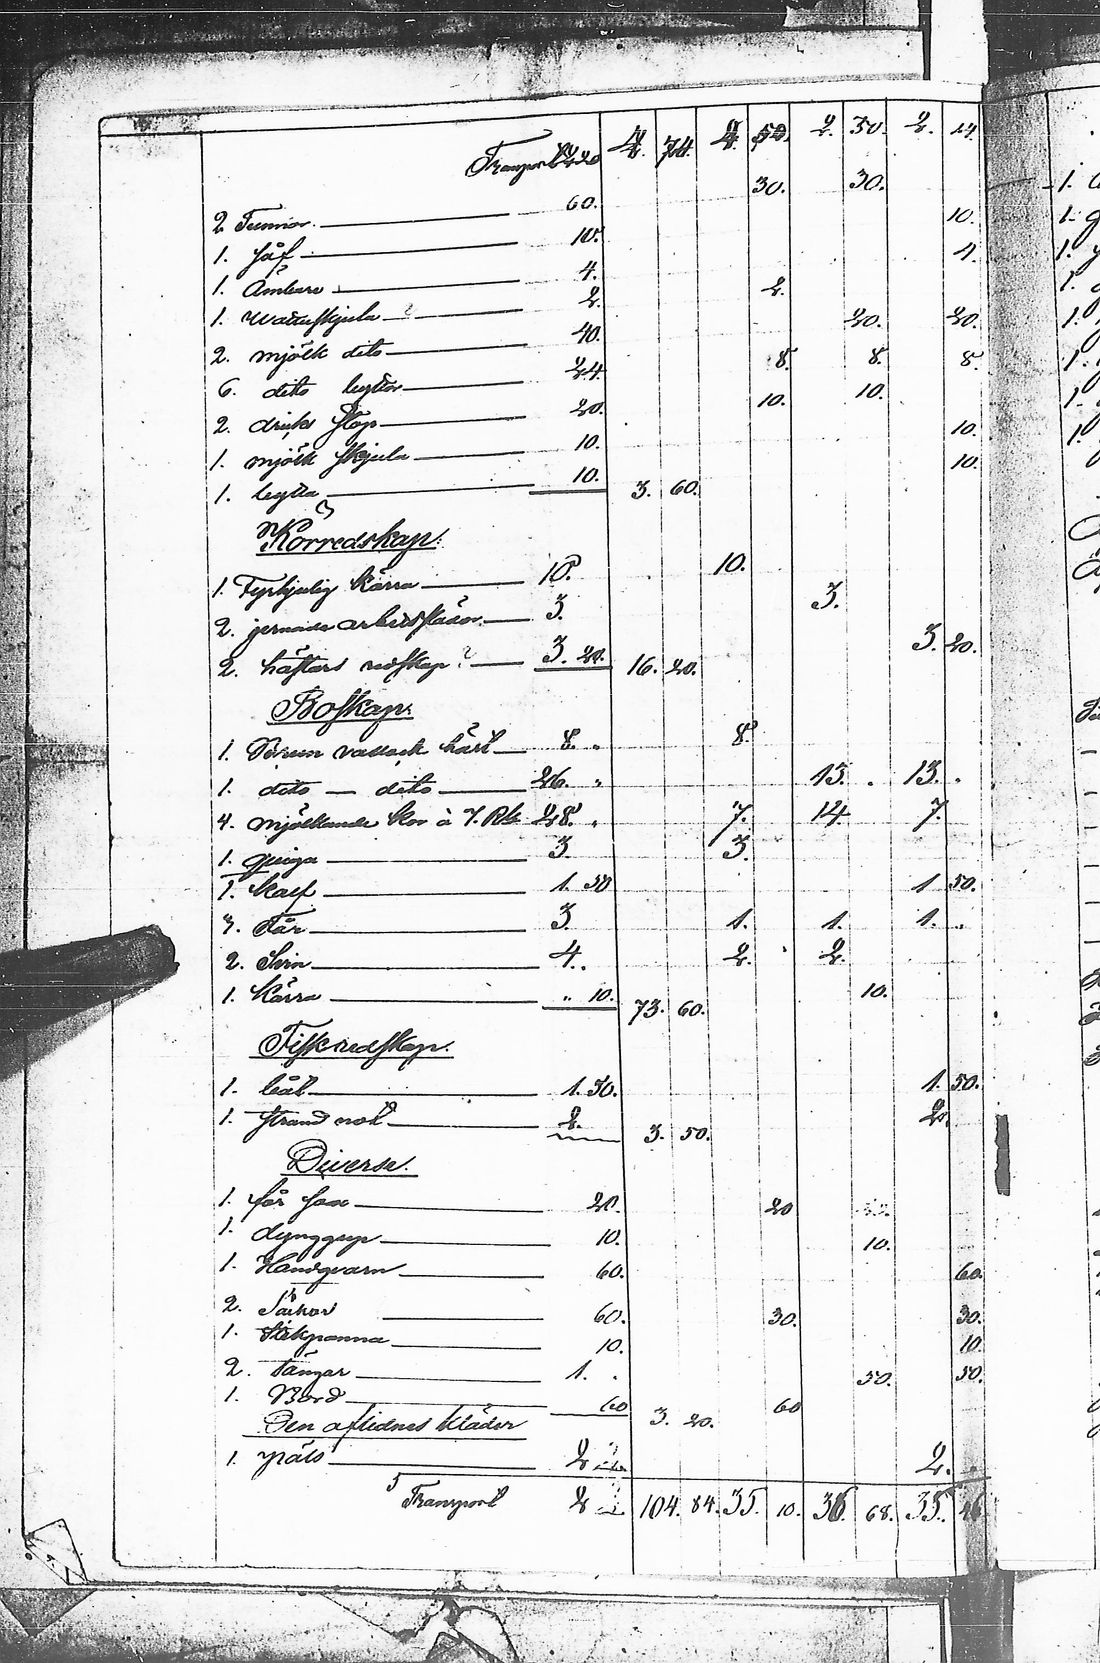 Transport 4. 74. 4. 50. 2. 30. 2. 24.
30. 30.
2 Tunnor 60. 10.
1. Håf 10. 4.
1. Ämbare 4. 2.
1. Wattuskjula ? 2. 20. 20.
2. mjölk dito 40. 8. 8. 8.
6. dito byttor 24. 10. 10.
2. dricks stop 20. 10.
1. mjölk skjula 10. 10.
1. bytta 10. 3. 60.
Körredskap.
1. Fyrhjulig kärra 10. 10.
2. jernade arbets 3. 3.
2. hästars redskap ? 3. 20. 16. 20. 3. 20.
Boskap.
1. vallack häst 8. „ 8.
1. dito — dito 26. „ 13. . 13. .
4. mjölkande kor à 7. Rb 28. „ 7. 14 7.
1. quiga 3. 3.
1. kalf 1. 50 1. 50.
3. Får 3. 1. 1. 1. „
2. Svin 4. . 2. 2.
1. Kärra „ 10. 73. 60. 10.
Fiskredskap.
1. båt 1. 50. 1. 50.
1. strand not 2. 3. 50. 2.
Diverse.
1. får sax 20. 20
1. dynggrep 10. 10.
1. Handqvarn 60. 60.
2. 60. 30. 30.
1. Stekpanna 10. 10.
2. tänger 1. . 50. 50.
1. Bord 60 3. 20. 60
Den aflidnes kläder
1. päls 2 2.
Transport 2 104. 84. 35. 10. 36. 68. 35. 46